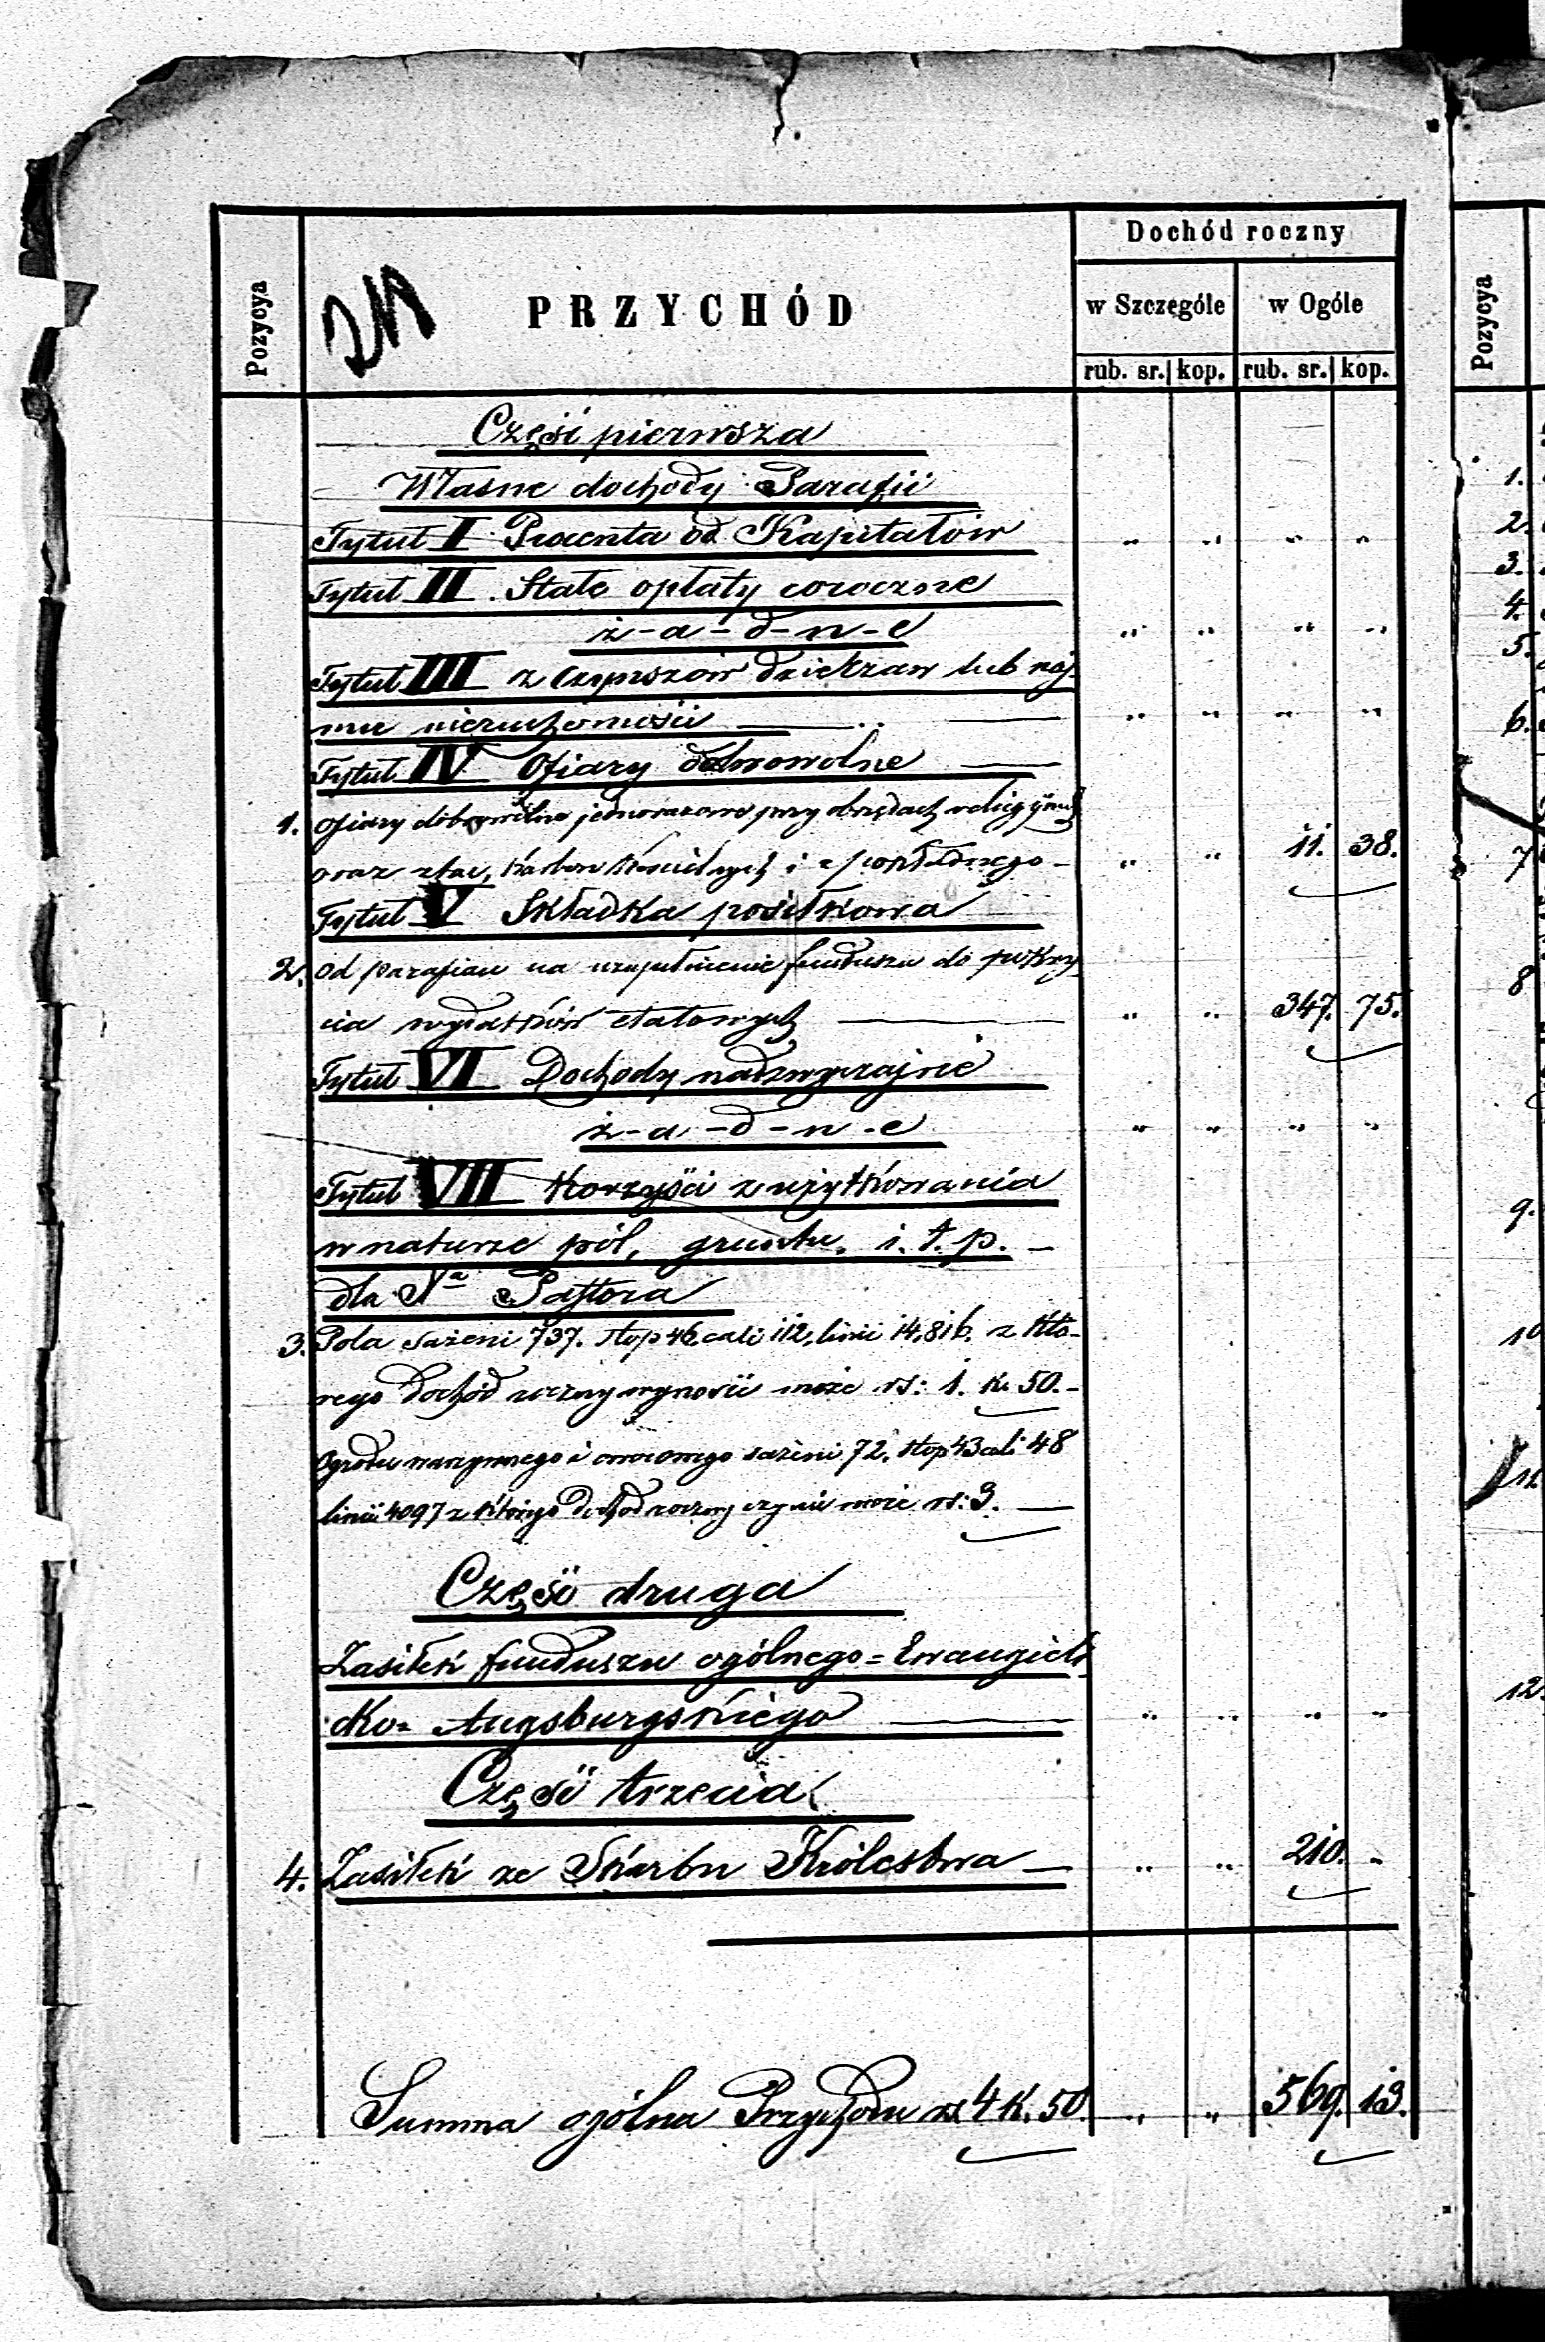 Dochód roczny
Pozycya
PRZYCHÓD
w Szczególe
w Ogóle
rub. sr. kop. rub. sr. kop.
Część pierwsza
Własne dochody Parafii
Tytuł I Procenta od Kapitałów " " " "
Tytuł II. Stałe opłaty coroczne
ż-a-d-n-e " " " "
Tytuł III z czynszów dzierżaw lub naj-
mu nieruchomości " " " "
Tytuł IV Ofiary dobrowolne
1. Ofiary dobrowolne jednorazowe przy obrzędach religijnych
oraz z tac, karbon kościelnych i pokładnego - " " 11. 38.
Tytuł V Składka posiłkowa
2. od parafian na uzupełnienie funduszu do pokry-
cia wydatków etatowych " " 347. 75.
Tytuł VI Dochody nadzwyczajne
ż-a-d-n-e " " " "
Tytuł VII Korzyści z użytkowania
w naturze pól, gruntu, i. t. p. -
dla Pastora
3. Pola sążeni 737. stop 46 cali 112, linii 14,816. z któ-
rego dochód roczny wynosić może rs: 1. k. 50.-
Ogrodu warzywnego i owocowego sążeni 72. stop 43 cali 48
linii 4097 z którego dochód roczny czynić może rs: 3. -
Część druga
Zasiłek funduszu ogólnego = Ewangielic-
ko = Augsburgskiego " " " "
Część trzecia
4. Zasiłek ze Skarbu Królestwa - " " 210. "
Summa ogólna Przychodu rs. 4 k. 50. " " 569. 13.
Pozycya
1.
2.
3.
4.
5.
6.
7
8
9.
10
12.